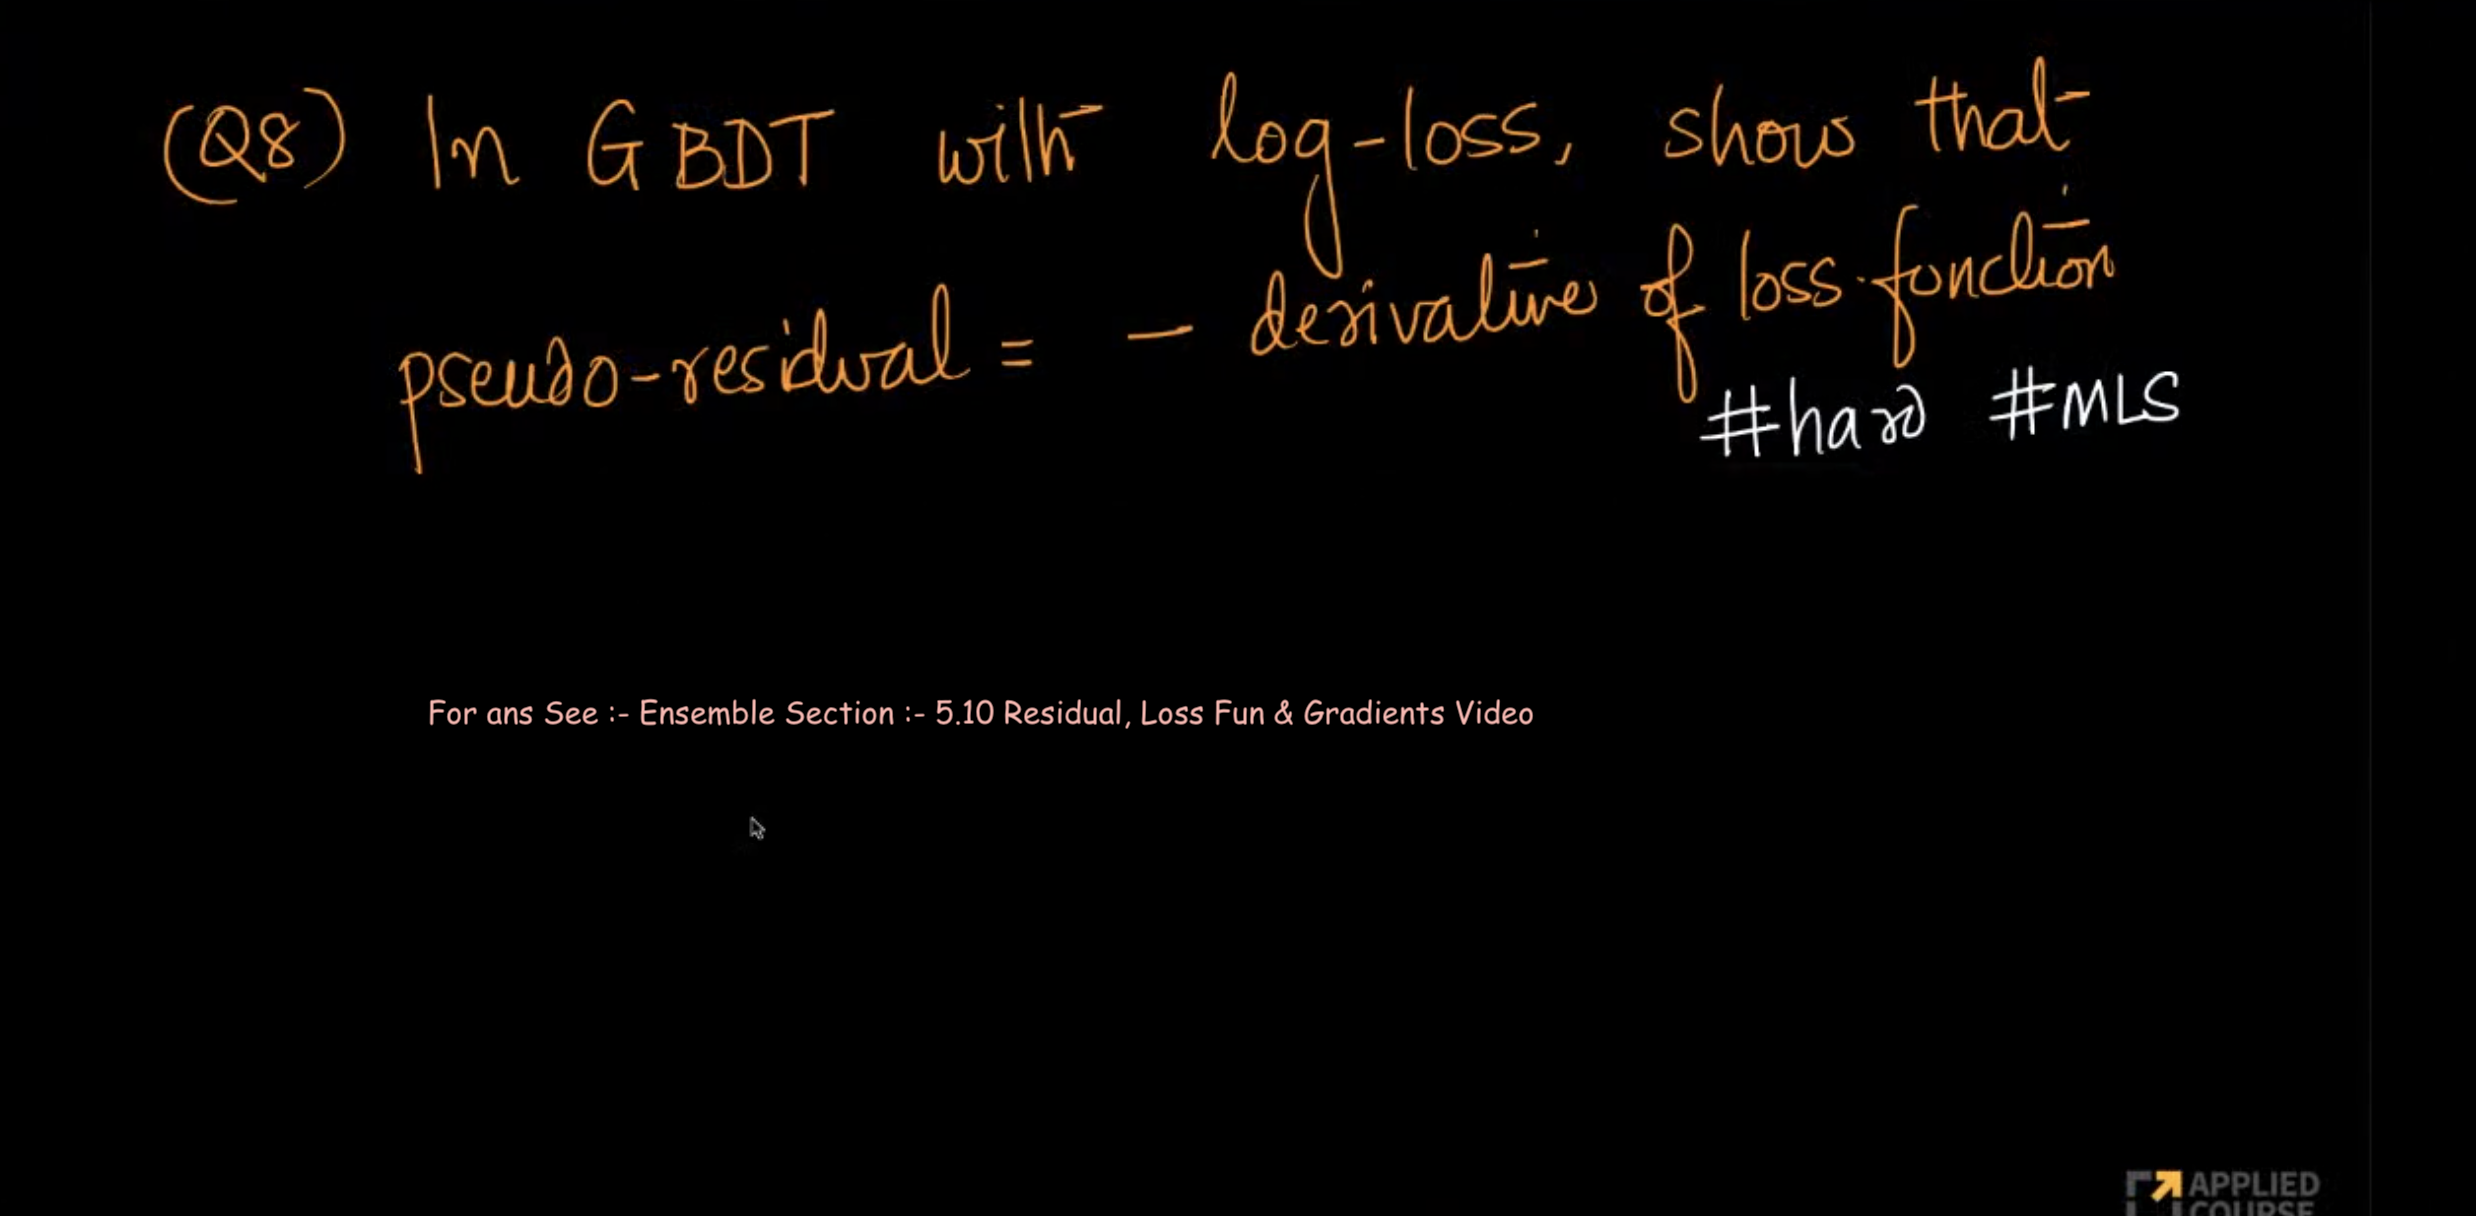 (Q8) In GBDT with log-loss, show that
pseudo-residual = - derivative of loss-function
#hard #MLS
For ans See :- Ensemble Section :- 5.10 Residual, Loss Fun & Gradients Video
APPLIED
COURSE